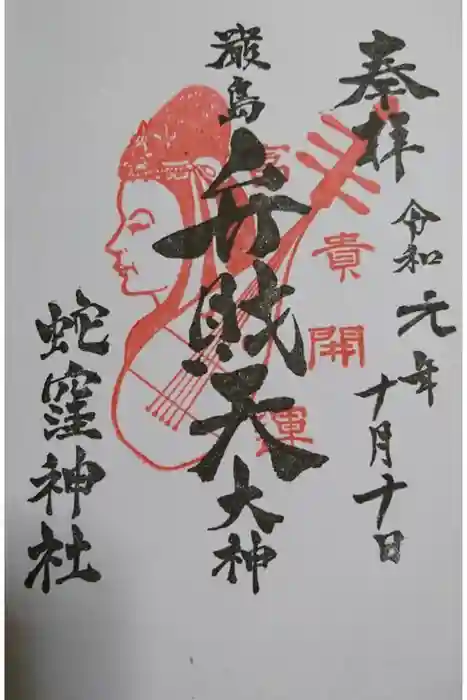 奉拝
令和元年
十月十日
富貴開運
嚴島
弁財天
大神
蛇窪神社